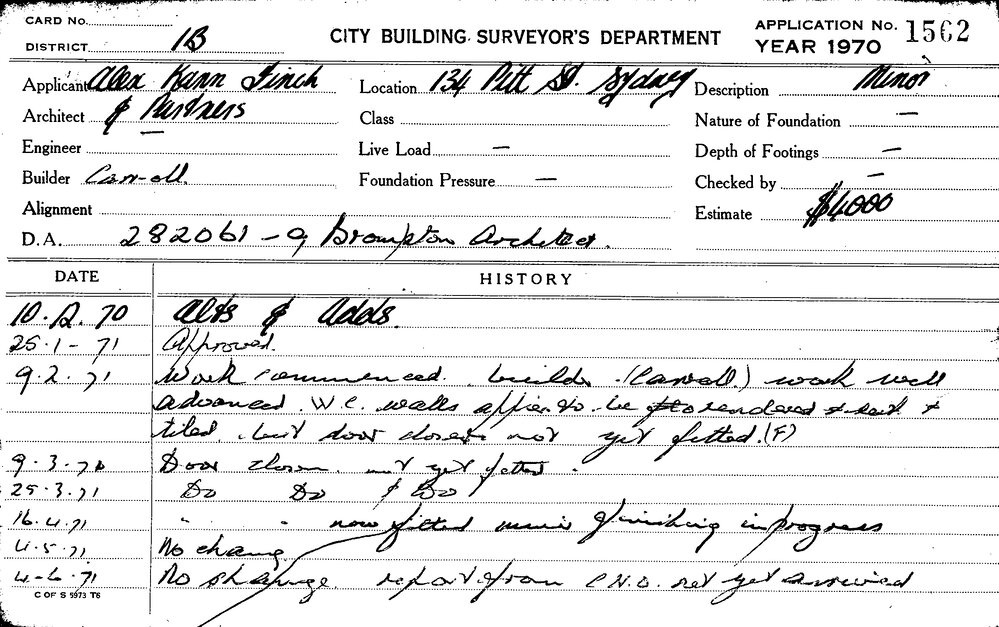 CARD No.
DISTRICT 1B
CITY BUILDING SURVEYOR'S DEPARTMENT
APPLICATION No. 1562
YEAR 1970
Applicant Alex Kann Finch
Location 134 Pitt St. Sydney
Description Minor
Architect & Partners
Class
Nature of Foundation —
Engineer —
Live Load —
Depth of Footings —
Builder Carroll.
Foundation Pressure —
Checked by —
Alignment
Estimate $4000
D.A. 282061 - 9 Brompton Architect.
DATE HISTORY
10.12.70 Alts & Adds.
25.1-71 Approved.
9.2.71 Work commenced. builder (Carroll.) work well
advanced. W.C. walls to be rendered &
tiled. but door closers not yet fitted. (F)
9.3.71 Door closers not yet fitted.
25.3.71 Do Do & Do
16.4.71 " " now fitted finishing in progress
4.5.71 No change
4-6.71 No change. report from C.N.O. not yet arrived
C OF S 5973 T6